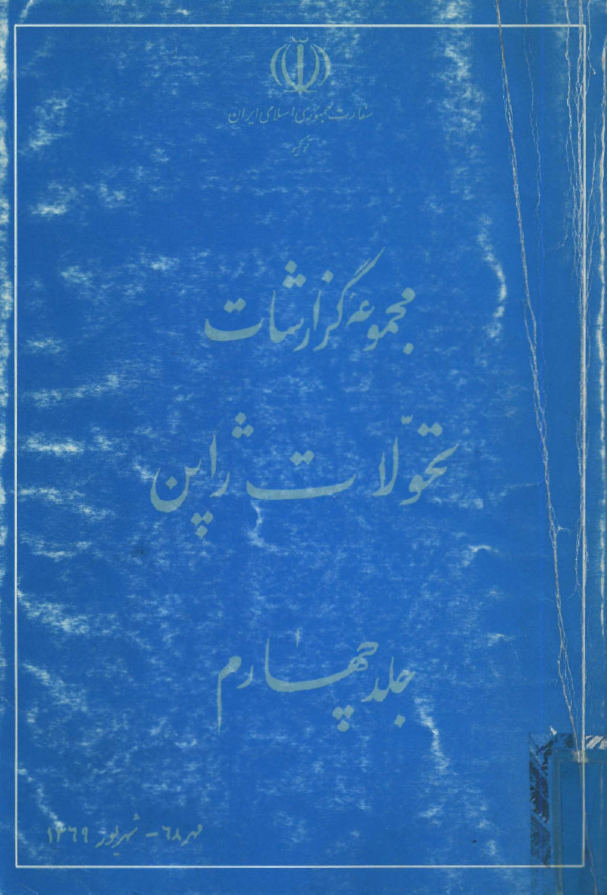 سفارت جمهوری اسلامی ایران
توکیو
مجموعه گزارشات
تحوّلات ژاپن
جلد چهارم
مهر ۶۸ - شهریور ۱۳۶۹